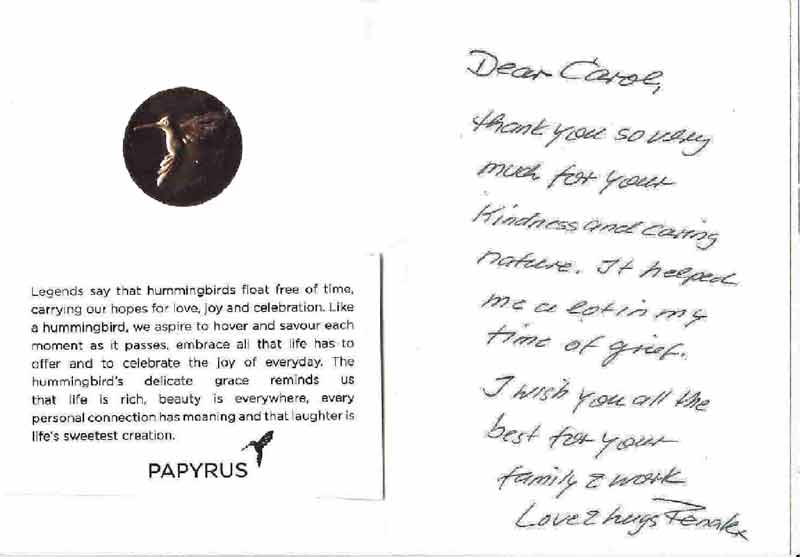 Legends say that hummingbirds float free of time,
carrying our hopes for love, joy and celebration. Like
a hummingbird, we aspire to hover and savour each
moment as it passes, embrace all that life has to
offer and to celebrate the joy of everyday. The
hummingbird's delicate grace reminds us
that life is rich, beauty is everywhere, every
personal connection has meaning and that laughter is
life's sweetest creation.
PAPYRUS
Dear Carol,
thank you so very
much for your
kindness and caring
nature. It helped
me a lot in my
time of grief.
I wish you all the
best for your
family & work
Love & hugs